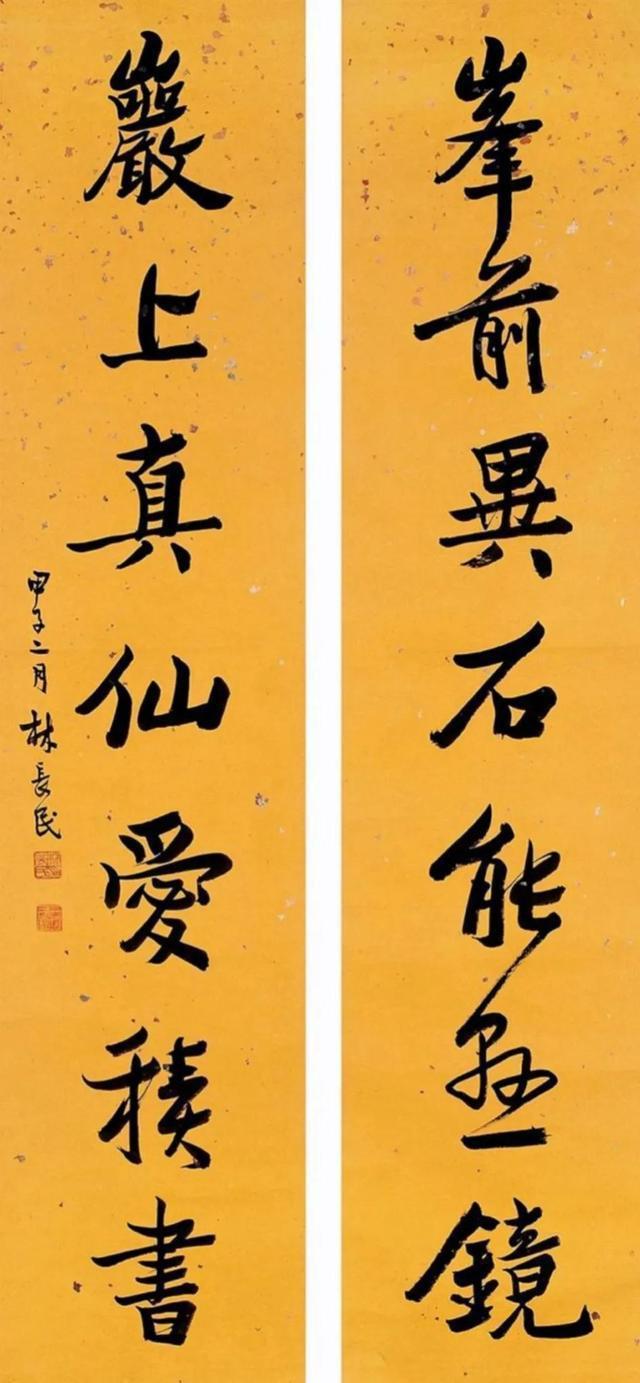 峯前異石能懸鏡
巖上真仙愛積書
甲子二月 林長民